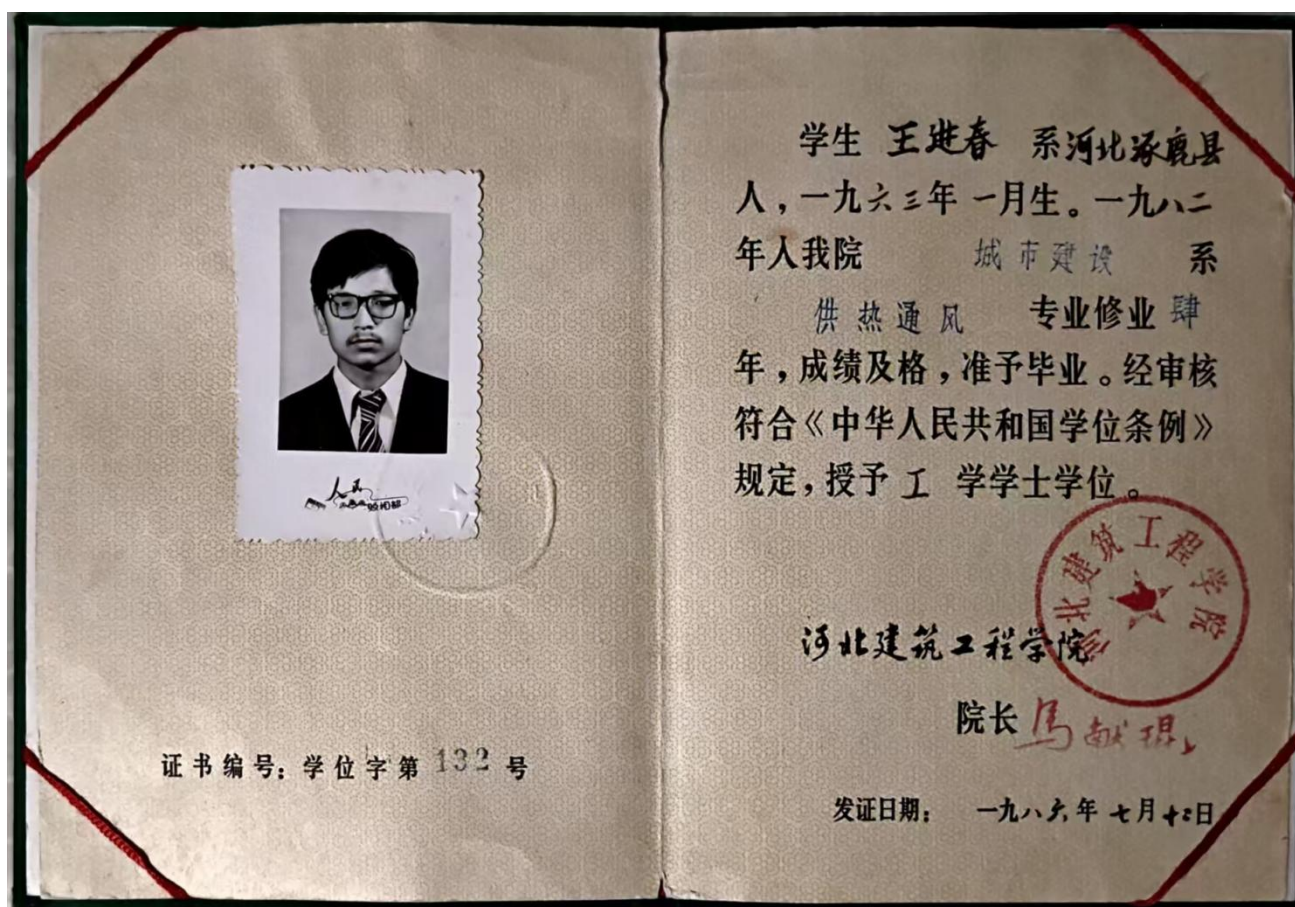 人民
证书编号：学位字第 132 号
学生 王进春 系河北涿鹿县
人，一九六三年 一月生。一九八二
年入我院 城市建设 系
供热通风 专业修业 肆
年，成绩及格，准予毕业。经审核
符合《中华人民共和国学位条例》
规定，授予 工 学学士学位。
河北建筑工程学院
河北建筑工程学院
院长 马献琨
发证日期： 一九八六年 七月十二日